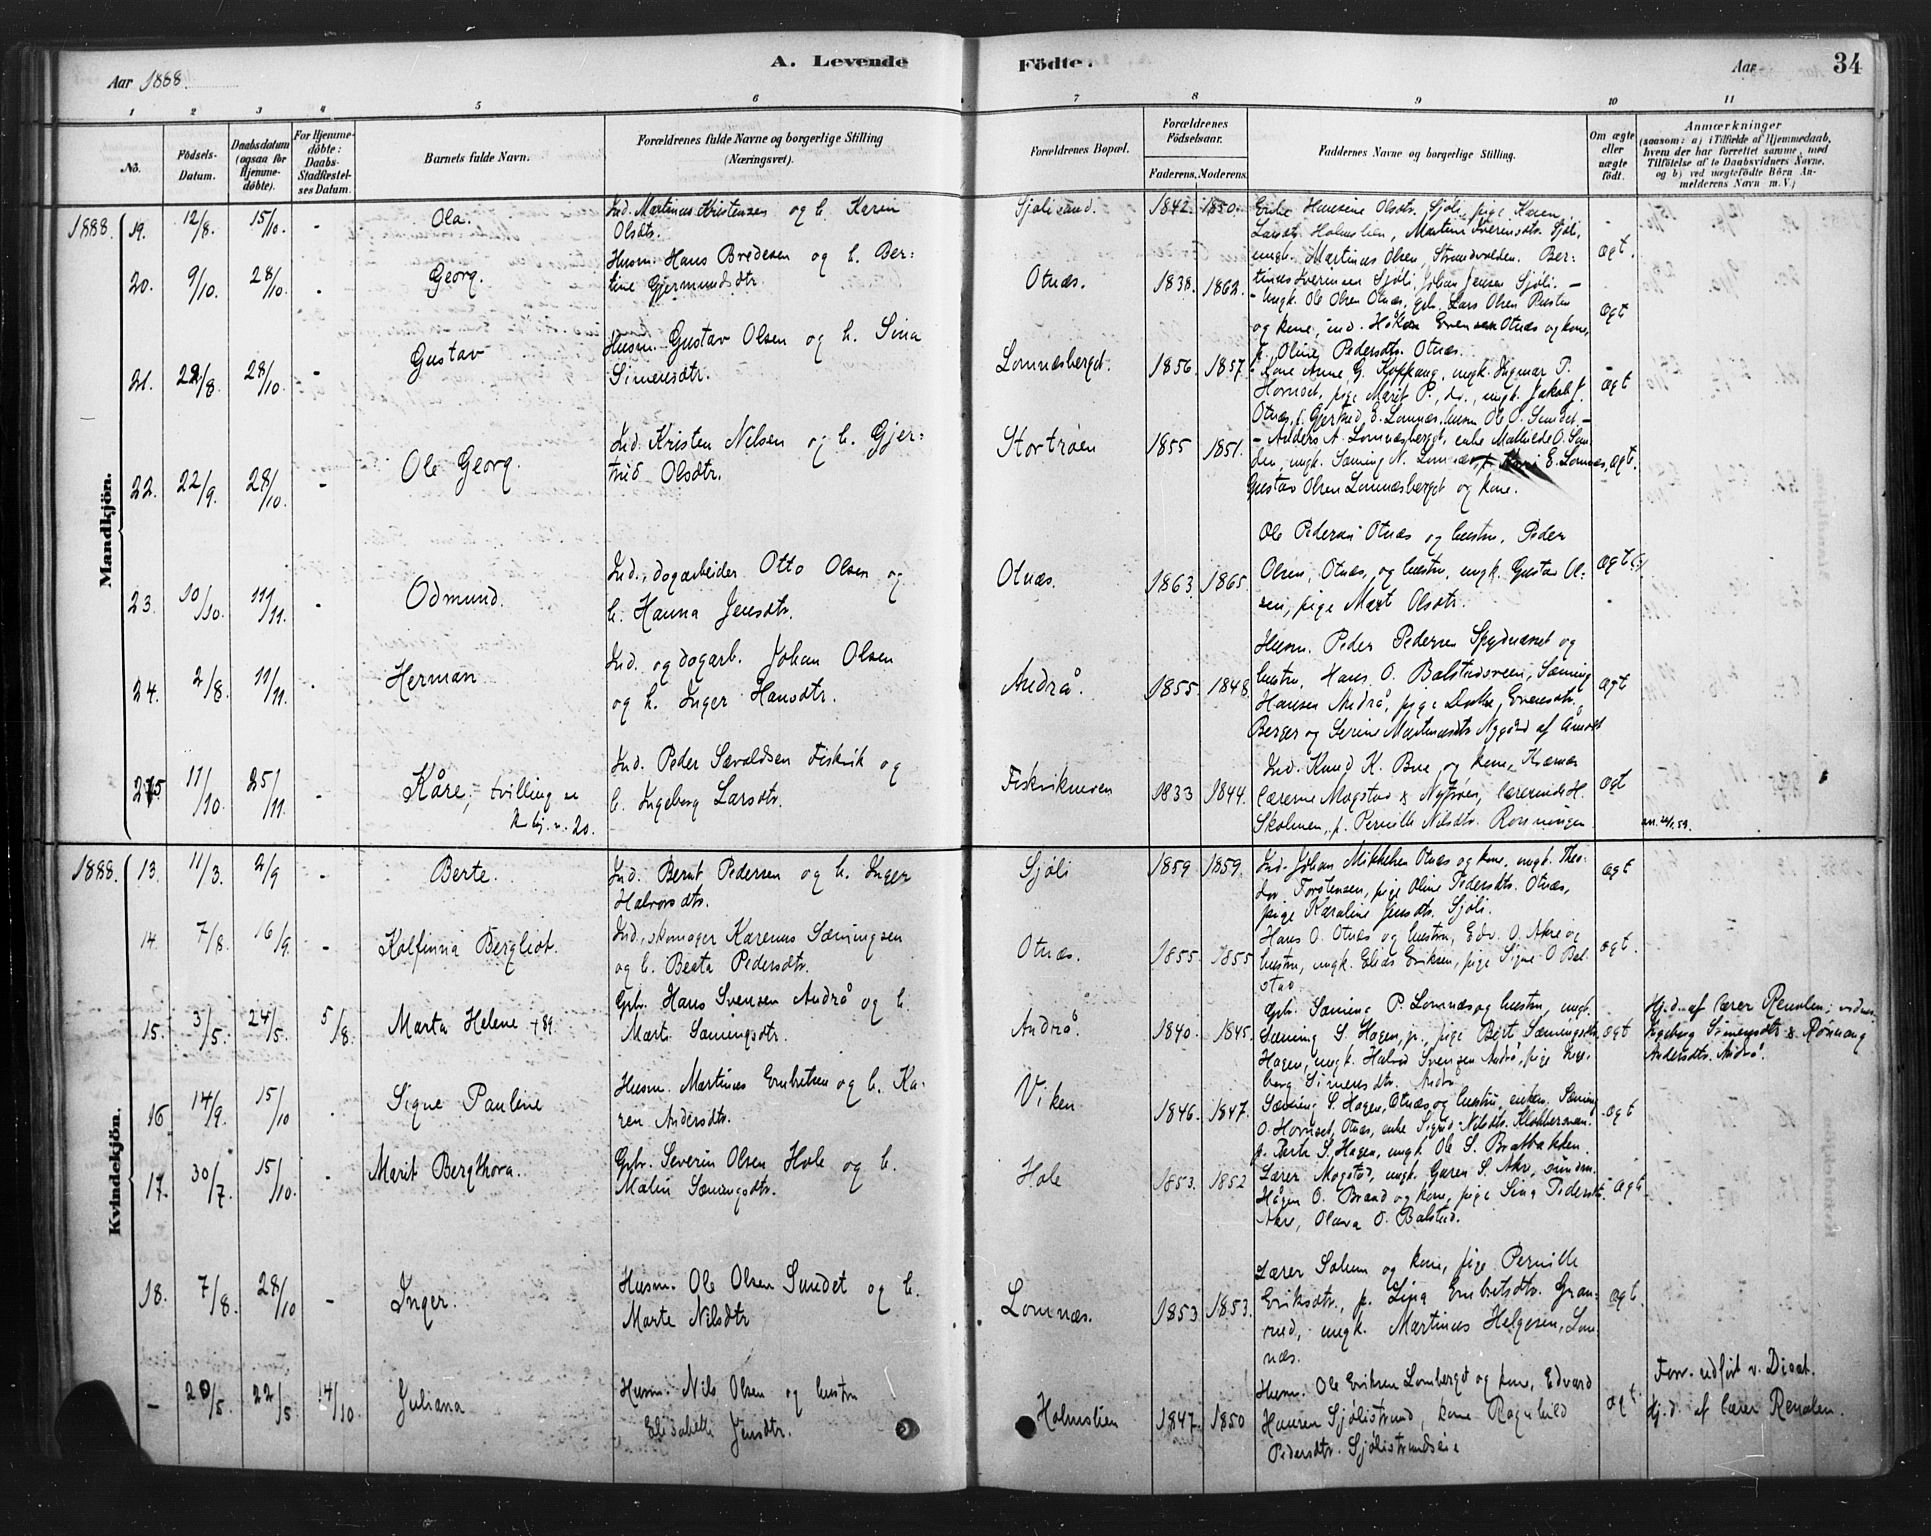 Aar 1888.
A. Levende Födte.
Aar
34
1 2 3 4 5 6 7 8 9 10 11
No.
Födsels-Datum.
Daabsdatum (ogsaa for Hjemmedöbte).
For Hjemmedöbte: Daabs-Stadfæstelses Datum.
Barnets fulde Navn.
Forældrenes fulde Navne og borgerlige Stilling (Næringsvei).
Forældrenes Bopæl.
Forældrenes Födselsaar.
Faderens. Moderens.
Faddernes Navne og borgerlige Stilling.
Om ægte eller uægte födt.
Anmærkninger
(saasom: a) i Tilfælde af Hjemmedaab, hvem der har forrettet samme, med Tilföielse af to Daabsvidners Navne, og b) ved uægtefödte Börn Anmelderens Navn m. V.)
Mandkjön.
1888. 19. 12/8. 15/10. - Ola.
Ind. Martinus Kristensen og h. Karen
Olsdtr.
Sjølisand. 1842. 1850.
Enke Hansine Olsdtr. Sjøli, pige Karen
Larsdtr. Holmslien, Martine Iverensdtr. Sjøli,
ungk. Martinus Olsen, Strandvolden. Ber-
tinus Iverensen Sjøli, Johan Jensen Sjøli. -
ægt.
20. 9/10. 28/10. Georg.
Husm. Hans Bredesen og h. Ber-
tine Gjermundsdtr.
Otnæs. 1838. 1862.
- Ungk. Ole Olsen Otnæs, gbr. Lars Olsen
og kone, ind. Håkon Evensen Otnæs og kone,
p. Oline Pedersdtr. Otnæs.
ægt
21. 22/8. 28/10. - Gustav
Husm. Gustav Olsen og h. Sina
Simensdtr.
Lomnæsberget. 1856. 1857.
Kone Anne G. Koppang, ungk. Ingmar P.
Hornset, pige Marit P., do., ungk. Jakob J.
Otnæs, p. Gjertrud E. Lomnæs, husm. Ole O. Sundet. -
ægt
22. 22/9. 28/10. - Ole Georg.
Ind. Kristen Nilsen og h. Gjer-
trud Olsdtr.
Stortrøen 1855 1851.
- Anders A. Lomnæsberget, enke Mathilde O. Sun-
det, ungk. Sæming N. Lomnæs, p. E. Lomnæs,
Gustav Olsen Lomnæsberget og kone.
ægt.
23. 10/10. 11/11. Odmund.
Ind., dagarbeider Otto Olsen og
h. Hanna Jensdtr.
Otnæs. 1863 1865.
Ole Pedersen Otnæs og hustru, Peder
Olsen, Otnæs, og hustru, ungk. Gustav Ol-
sen, pige Mart Olsdtr.
ægt
24. 2/8. 11/11. Herman
Ind. og dagarb. Johan Olsen
og h. Inger Hansdtr.
Andrå. 1855. 1848.
Husm. Peder Pedersen Spydnæset og
hustru, Hans O. Balstadsveen, Sæming
Hansen Andrå, pige Evensdtr.
Berger og Serine Martinusdtr. Nygård af Åmodt
ægt
25 11/10. 25/11. - Kåre, tvilling se
kj. n. 20.
Ind. Peder Sævaldsen Fiskvik og
h. Ingeborg Larsdtr.
Fiskvikmoen 1833 1844.
Ind. Knud K. Bue og kone, Kræmer
lærerne Magstad & Nytrøen, lærerinde H.
Skolmen, p. Pernille Nilsdtr. Rønningen
ægt
Kvindekjön.
1888. 13. 11/3. 2/9 - Berte.
Ind. Bernt Pedersen og h. Inger
Halvorsdtr.
Sjøli 1859 1859.
Ind. Johan Mikkelsen Otnæs og kone, ungk. Theo-
dor Torstensen, pige Oline Pedersdtr. Otnæs,
pige Karoline Jensdtr. Sjøli.
ægt
14. 7/8. 16/9. - Kolfinna Bergliot.
Ind., skomager Karenus Sæmingsen
og h. Beata Pedersdtr.
Otnæs. 1855. 1855
Hans O. Otnæs og hustru, Edv. O. Akre og
hustru, ungk. Elias Eriksen, pige Signe O. Bal-
stad
ægt.
15. 3/5. 24/5. 5/8. Marta Helene +89.
Gbr. Hans Svensen Andrå og h.
Marte Sæmingsdtr.
Andrå 1840. 1845.
Gbr. Sæming P. Lomnæs og hustru, ungk.
Sæming S. Hagen, jr., pige Berit Sæmingsdtr.
Hagen, ungk. Halvor Svensen Andrå, pige Inge-
borg Simensdtr. Andrå.
ægt
Hj.d. af lærer Renolen; vidner
Ingeborg Simensdtr & Rønnaug
Andersdtr. Andrå.
16 14/9. 15/10 Signe Pauline
Husm. Martinus Embretsen og h. Ka-
ren Andersdtr.
Viken 1846. 1847.
Sæming S. Hagen, Otnæs og hustru, enkem. Sæming
O. Hornset, Otnæs, enke Sigrid Nilsdtr. Klokkersveen.
p. Berta S. Hagen, ungk. Ole S. Bratbakken.
ægt
17. 30/7. 15/10. Marit Bergthora.
Gbr. Severin Olsen Hole og h.
Malin Sæmingsdtr.
Hole 1853. 1852
Lærer Magstad, ungk. Gæren S. Akre,
Hågen O. Brænd og kone, pige Sina Pedersdtr.
Akre, Olava O. Balstad.
ægt
18. 7/8. 28/10 - Inger.
Husm. Ole Olsen Sundet og h.
Marte Nilsdtr
Lomnæs. 1853 1853.
Lærer Solum og kone, pige Pernille
Eriksdtr., p. Lina Embretsdtr. Gran-
rud, ungk. Martinus Helgesen, Lom-
næs.
ægt.
- 20/5. 22/5 14/10. Juliana
Husm. Nils Olsen og hustru
Elisabeth Jensdtr.
Holmslien 1847. 1850
Husm. Ole Eriksen Lomberget og kone, Edvard
Hansen Sjølistrand, kone Ragnhild
Pedersdtr. Sjølistrandseie
ægt
Forr. udført v. Dicat.
Hj.d. af lærer Renolen.